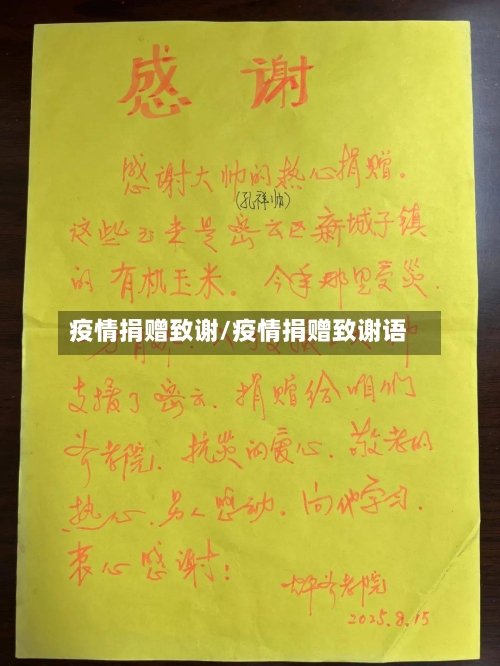 感谢
感谢大帅的热心捐赠。
(孔祥帅)
这些玉米是密云区新城子镇
的有机玉米。今年那里受灾.
疫情捐赠致谢/疫情捐赠致谢语
支援了密云.捐赠给咱们
养老院.抗灾的爱心.敬老的
热心.另人感动.向他学习.
衷心感谢!
养老院
2025.8.15